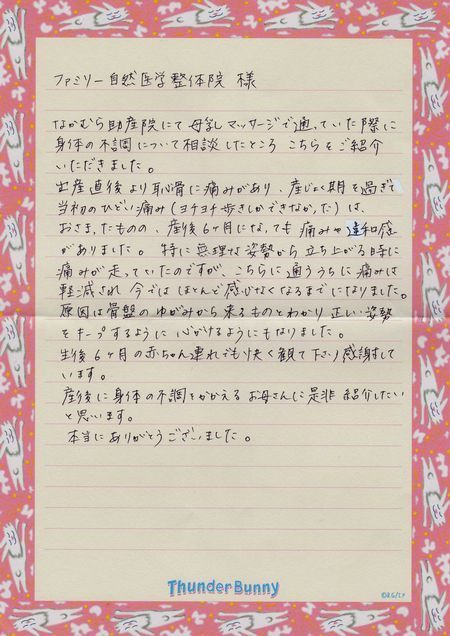 ファミリー自然医学整体院 様
ながむら助産院にて母乳マッサージで通っていた際に
身体の不調について相談したところ こちらをご紹介
いただきました。
出産直後より恥骨に痛みがあり、産じょく期を過ぎて
当初のひどい痛み(ヨチヨチ歩きしかできなかった)は、
おさまったものの、産後6ヶ月になっても痛みや違和感
がありました。特に無理な姿勢から立ち上がる時に
痛みが走っていたのですが、こちらに通ううちに痛みは
軽減され 今では ほとんど感じなくなるまでになりました。
原因は骨盤のゆがみから来るものとわかり 正しい姿勢
をキープするように 心がけるようにもなりました。
生後6ヶ月の赤ちゃん連れでも快く観て下さり感謝して
います。
産後に身体の不調をかかえるお母さんに是非 紹介したい
と思います。
本当にありがとうございました。
ThunderBunny